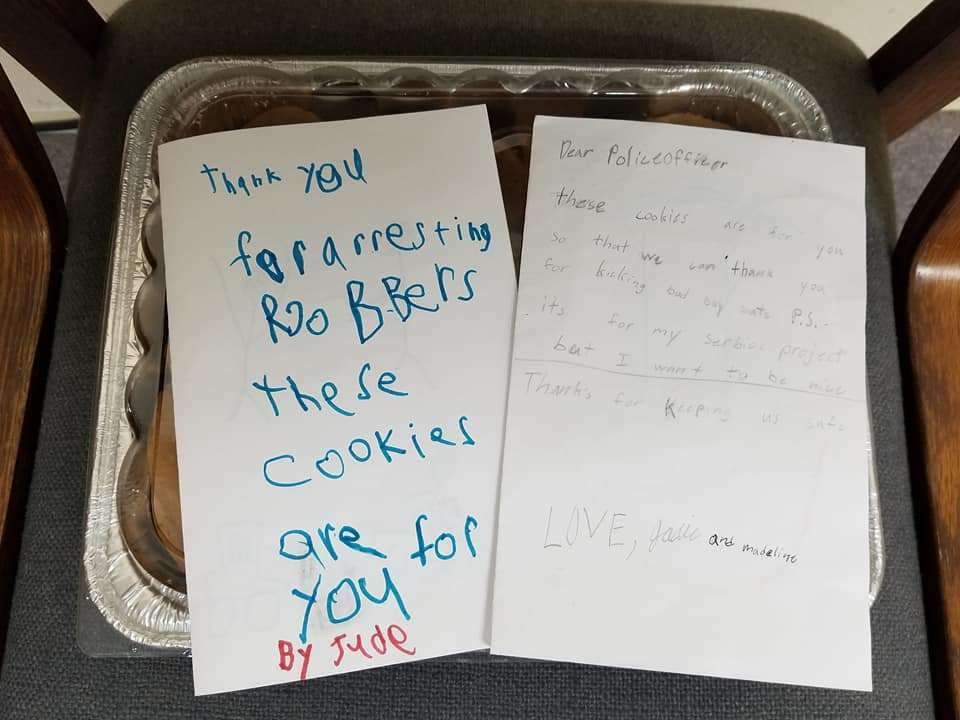 Thank you
for arresting
RoBBers
these
cookies
are for
you
By Jude
Dear Policeofficer
these cookies are for you
so that we can thank you
for kicking bad guy outs P.S.
its for my project
but I want to be nice
Thanks for Keeping us safe
LOVE, and madeline